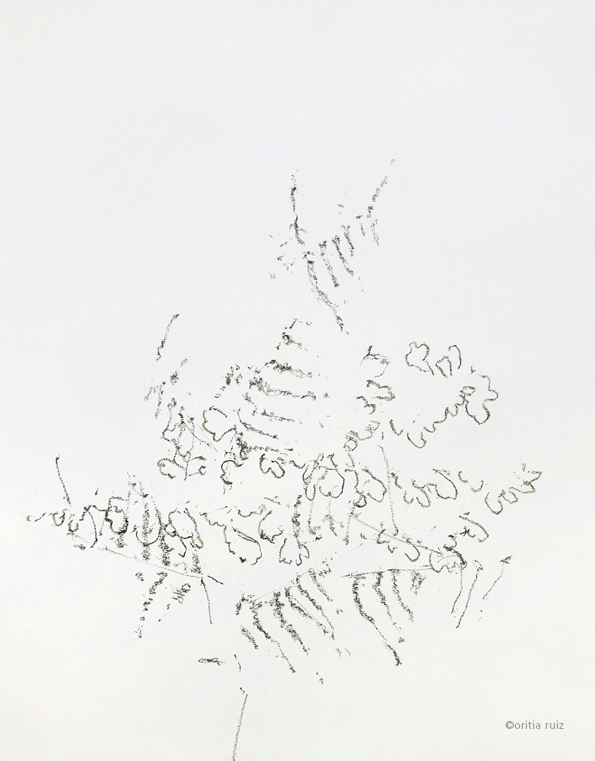 ©oritia ruiz